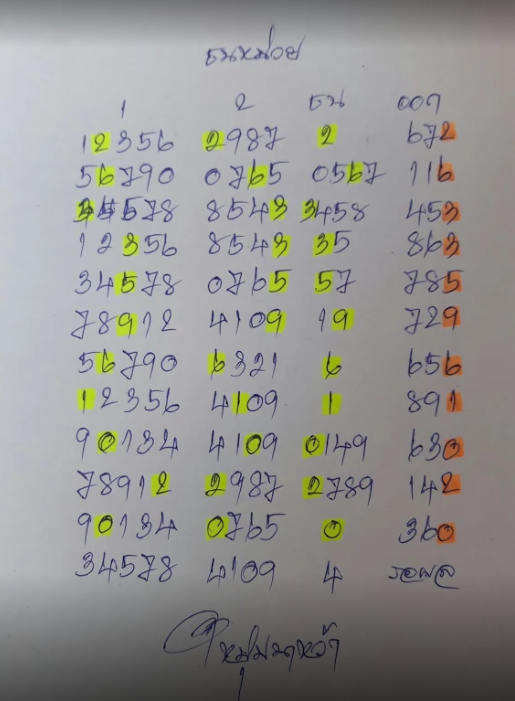 ชนหน่วย
1 2 ชน ออก
12356 2987 2 672
56790 0765 0567 116
34578 8543 3458 453
12356 8543 35 863
34578 0765 57 785
78912 4109 19 729
56790 6321 6 656
12356 4109 1 891
90134 4109 0149 630
78912 2987 2789 142
90134 0765 0 360
34578 4109 4 รอผล